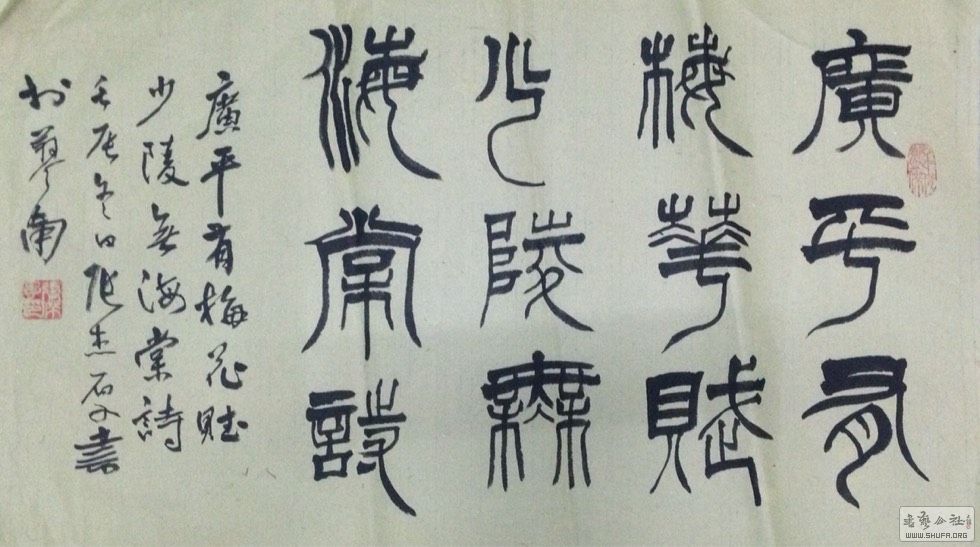 廣平有
梅華賦
少陵無
海棠詩
廣平有梅花賦
少陵無海棠詩
壬辰冬日張杰石子書
於粵南
書藝公社
WWW.SHUFA.ORG